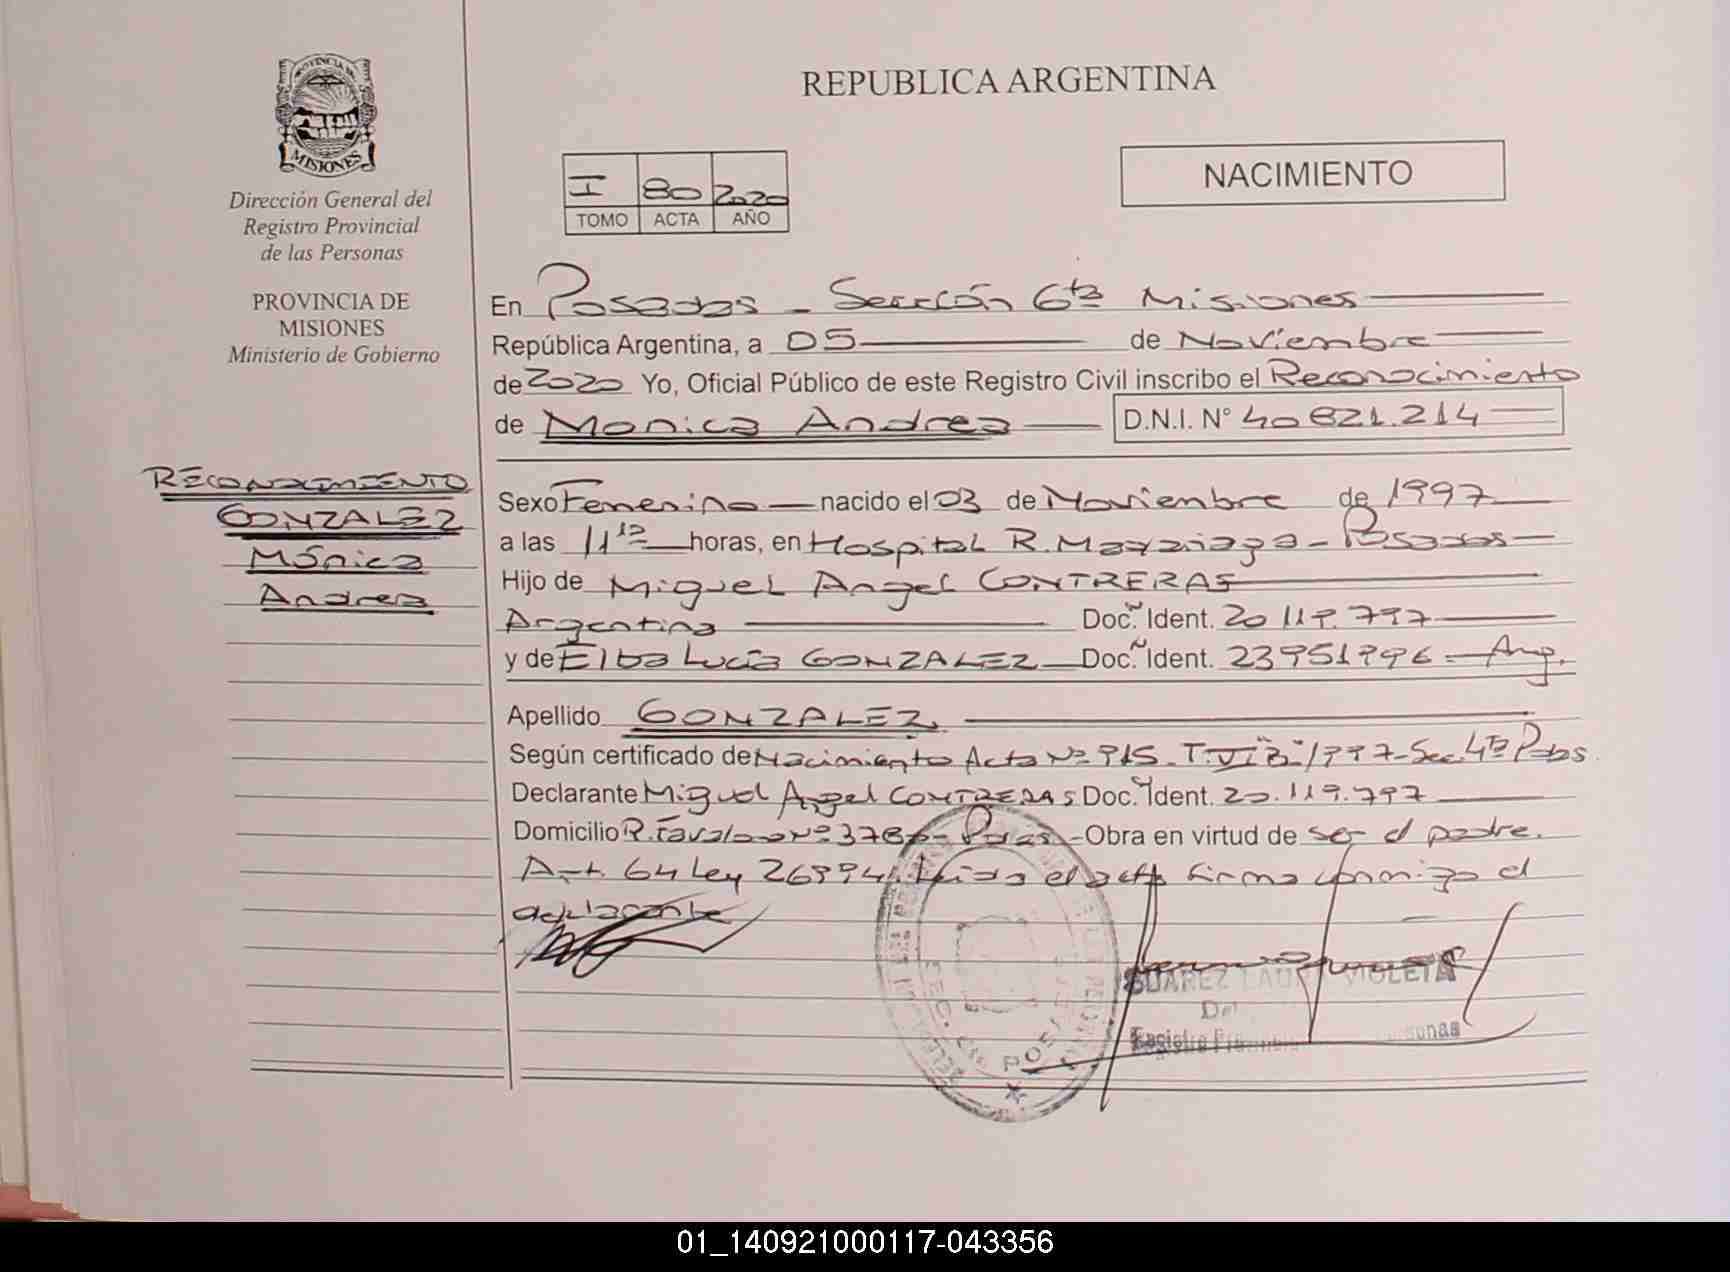 PROVINCIA DE
MISIONES
Dirección General del
Registro Provincial
de las Personas
PROVINCIA DE
MISIONES
Ministerio de Gobierno
RECONOCIMIENTO
GONZALEZ
Mónica
Andrea
REPUBLICA ARGENTINA
NACIMIENTO
I 80 2020
TOMO ACTA AÑO
En Posadas - Sección 6ta Misiones
República Argentina, a 05 de Noviembre
de 2020 Yo, Oficial Público de este Registro Civil inscribo el Reconocimiento
de Monica Andrea D.N.I. N° 40 821.214
Sexo Femenino nacido el 03 de Noviembre de 1997
a las 11 horas, en Hospital R. Posadas
Hijo de Miguel Angel CONTRERAS
Argentina Doc. Ident. 20 119.797
y de Elba Lucía GONZALEZ Doc. Ident. 23951996 - Arg.
Apellido GONZALEZ
Según certificado de Nacimiento Acta Nº 915 - T. 1997 - Sec. 4ta Pdas
Declarante Miguel Angel CONTRERAS Doc. Ident. 20.119.797
Domicilio Nº Obra en virtud de ser el padre.
Art. 64 Ley 26994. el acta firma conmigo el
SUAREZ LAURA VIOLETA
SEC. 6ta POSADAS
01_140921000117-043356